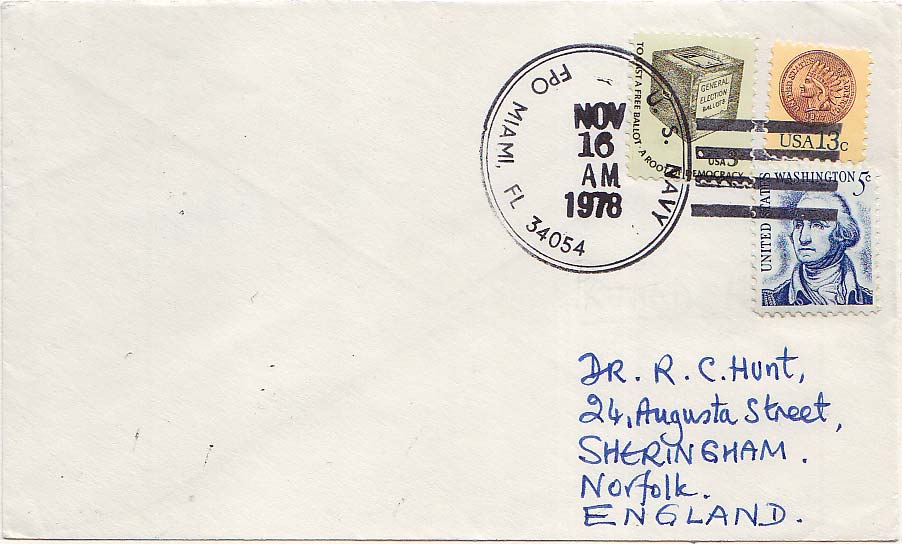 U. S. NAVY
FPO MIAMI, FL 34054
NOV
16
AM
1978
TO CAST A FREE BALLOT · A ROOT OF DEMOCRACY
GENERAL
ELECTION
BALLOTS
USA 3
USA 13c
UNITED STATES
WASHINGTON 5c
DR. R. C. Hunt,
24, Augusta Street,
SHERINGHAM.
Norfolk.
ENGLAND.